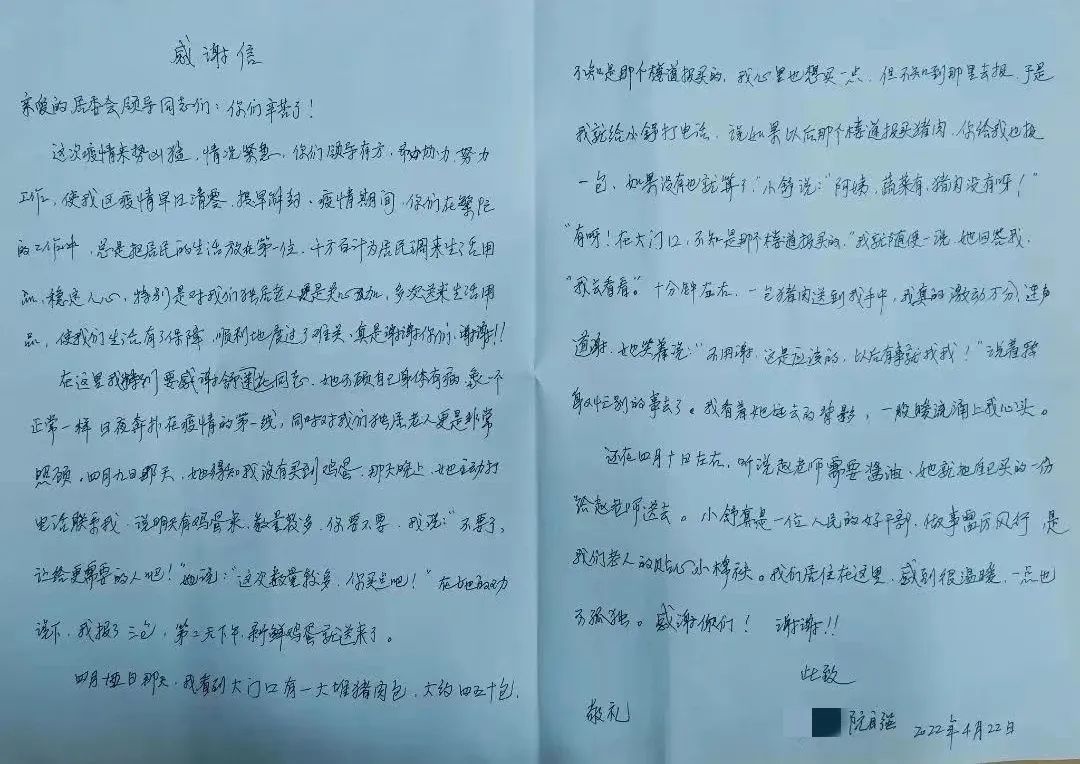 感谢信
亲爱的居委会领导同志们：你们辛苦了！
这次疫情来势凶猛，情况紧急，你们领导有方，协力，努力
工作，使我区疫情早日清零，提早解封、疫情期间，你们在繁忙
的工作中，总是把居民的生活放在第一位，千方百计为居民调来生活用
品，稳定人心，特别是对我们独居老人更是关心，多次送来生活用
品，使我们生活有了保障，顺利地度过了难关、真是谢谢你们，谢谢!!
在这里我特别要感谢舒同志，她不顾自己身体有病，象
正常一样日夜奔扑在疫情的第一线，同时对我们独居老人更是非常
照顾，四月九日那天，她得知我没有买到鸡蛋，那天晚上，她主动打
电话联系我，说明天有鸡蛋来，数量较多，你要不要，我说：“不要了，
让给更需要的人吧！”她说：“这次数量较多，你买点吧！”在她的劝
说下，我报了三包，第二天下午，新鲜鸡蛋就送来了。
四月日那天，我看到大门口有一大堆猪肉包，大约四五十包，
不知是那个楼道报买的，我心里也想买一点，但不知到那里去报，于是
我就给小舒打电话，说如果以后那个楼道报买猪肉，你给我也报
一包，如果没有也就算了，”小舒说：“阿姨，蔬菜有，猪肉没有呀！”
“有呀！在大门口，不知是那个楼道报买的，”我就随便一说，她回答我，
“我去看看。”十分钟左右，一包猪肉送到我手中，我真的激动万分，连声
道谢，她笑着说：“不用谢，这是应该的，以后有事就找我！”说着
忙别的事去了。我看着她远去的背影，一股暖流涌上我心头。
还在四月十日左右，听说赵老师需要酱油，她就把自己买的一份
给赵老师送去。小舒真是一位人民的好干部，做事雷厉风行，是
我们老人的贴心小棉袄。我们居住在这里，感到很温暖，一点也
不孤独。感谢你们！谢谢!!
此致
敬礼
阮
2022年4月22日